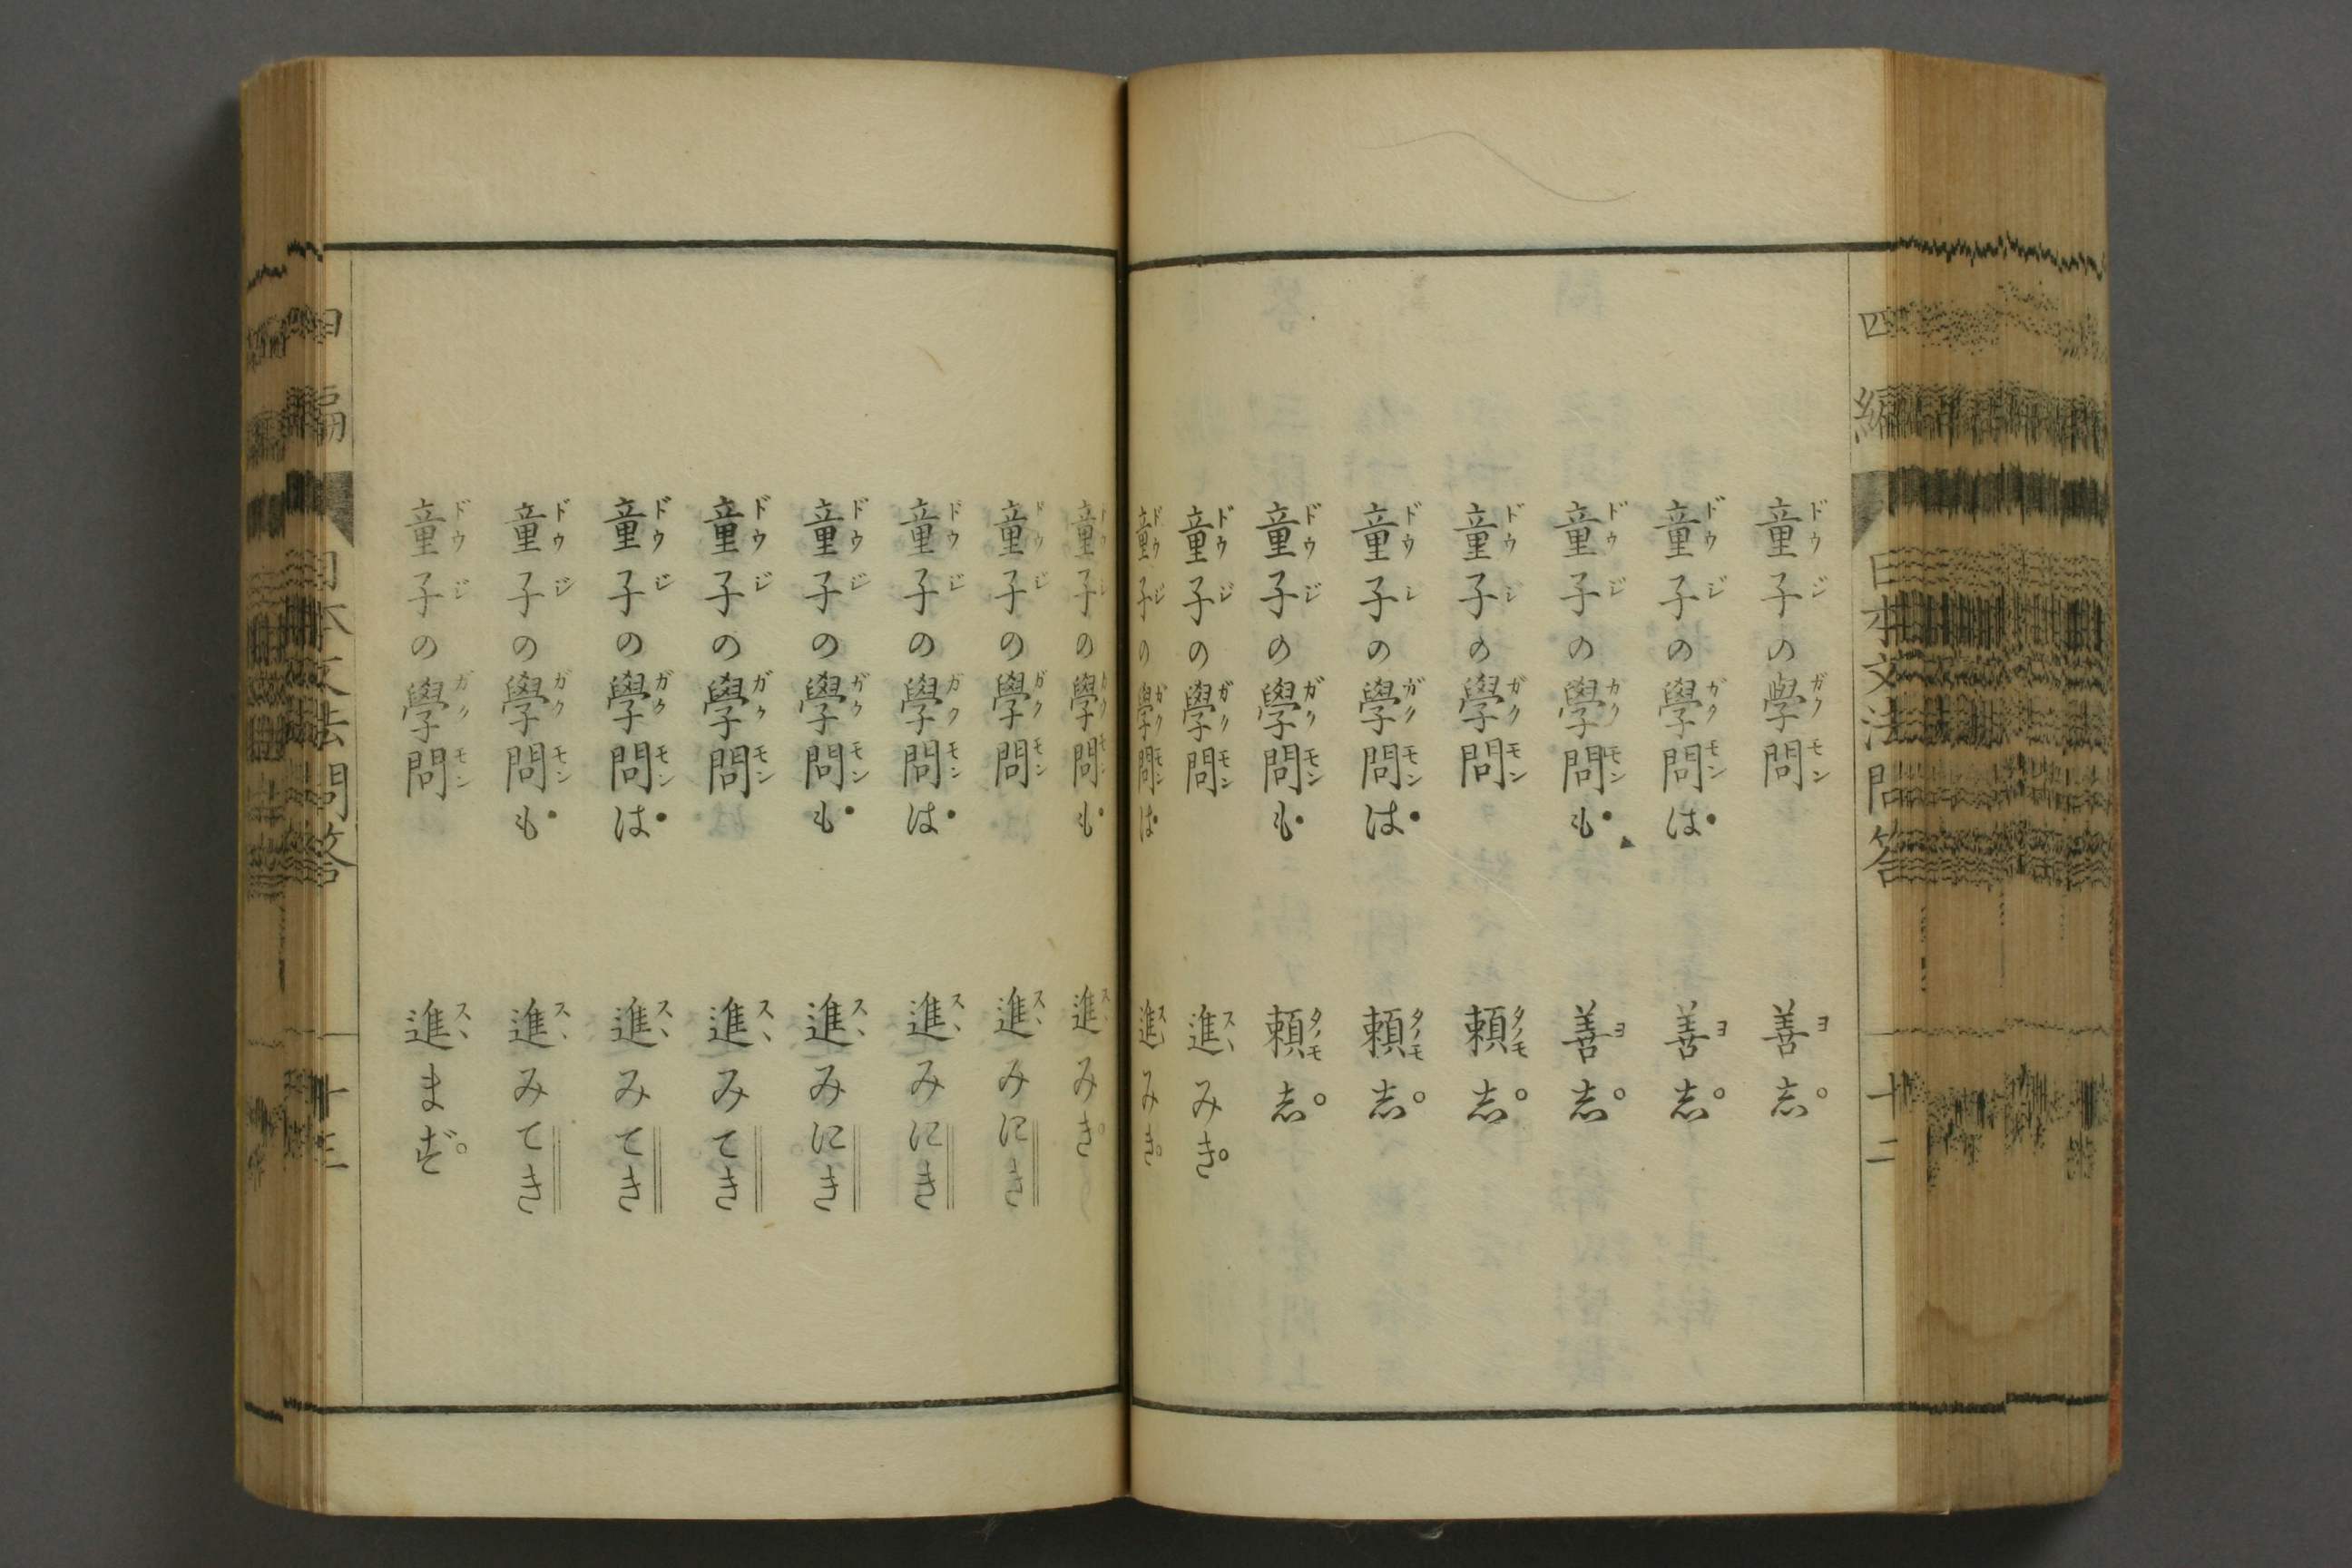 四編 日本文法問答 十二
童子の學問 善志
童子の學問は 善志
童子の學問も 善志
童子の學問 頼志
童子の學問は 頼志
童子の學問も 頼志
童子の學問 進みき
童子の學問は 進みき
童子の學問も 進みき
童子の學問 進みにき
童子の學問は 進みにき
童子の學問も 進みにき
童子の學問 進みてき
童子の學問は 進みてき
童子の學問も 進みてき
童子の學問 進まず
四編 日本文法問答 十三